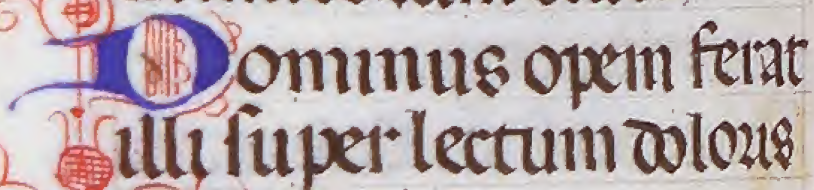 Dominus opem ferat
illi super lectum doloris